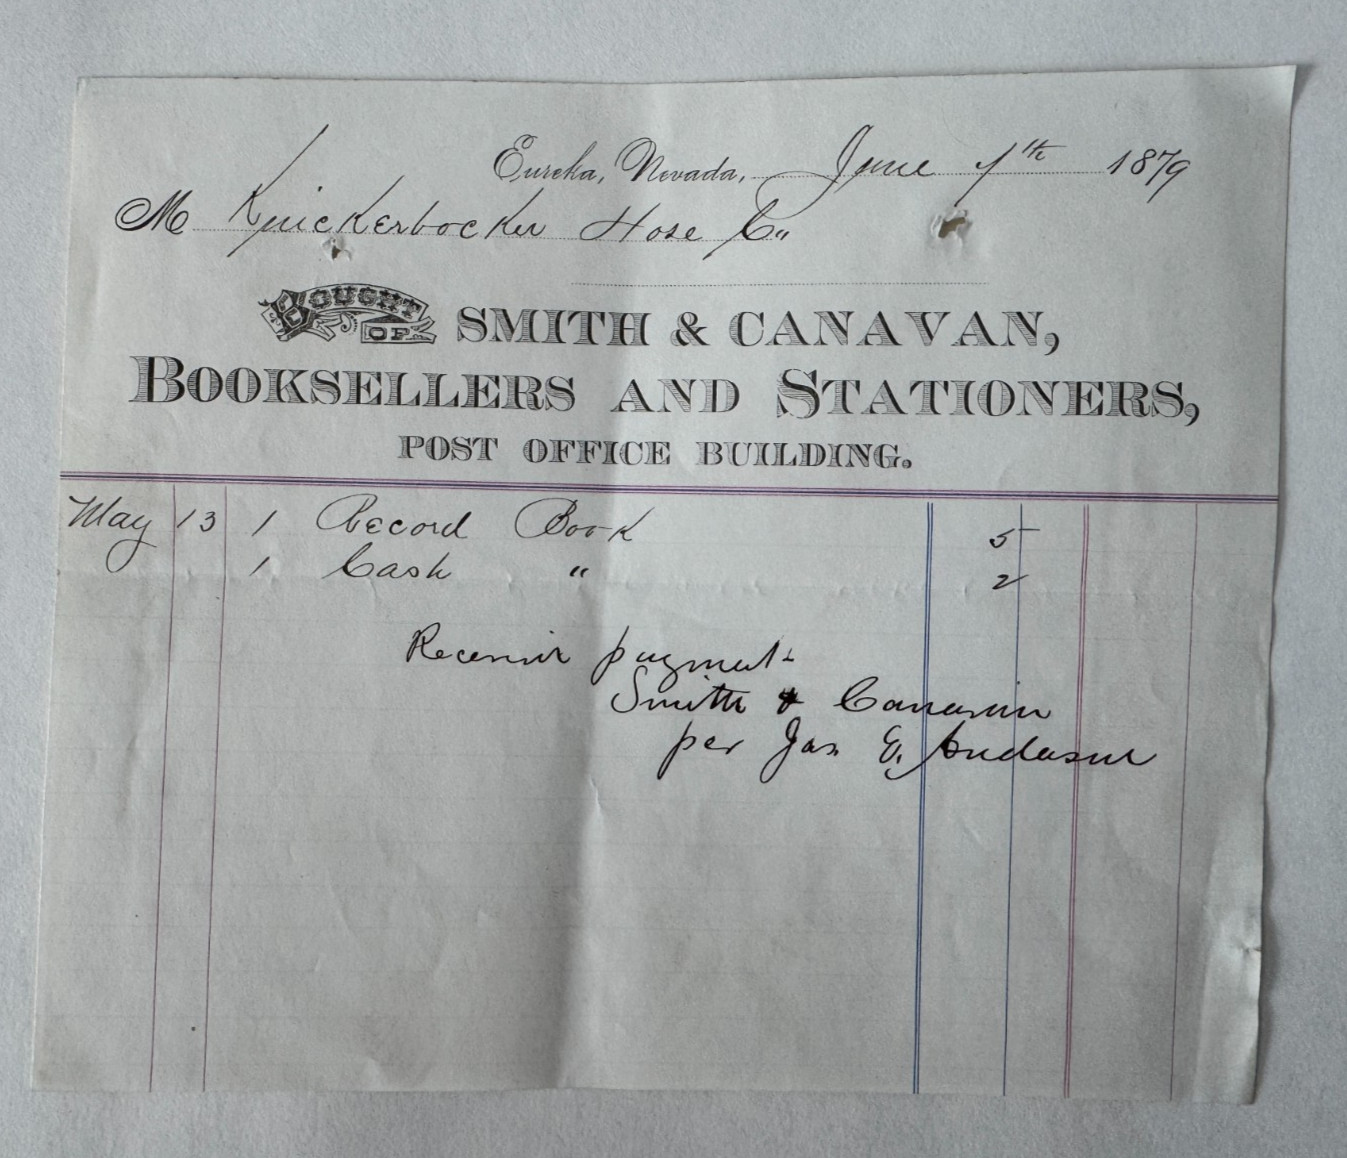 Eureka, Nevada, June 7th 1879
M Knickerbocker Hose Co,,
BOUGHT OF SMITH & CANAVAN,
BOOKSELLERS AND STATIONERS,
POST OFFICE BUILDING.
May 13 1 Record Book 5
1 Cash " 2
Receivd payment
Smith & Canavan
per Jas. E. Anderson